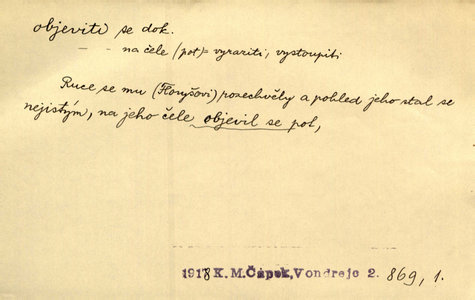 objeviti se dok.
— – na čele (pot) = vyraziti, vystoupiti
Ruce se mu (Floryšovi) rozechvěly a pohled jeho stal se
nejistým, na jeho čele objevil se pot,
1918 K. M. Čapek, Vondrejc 2. 869, 1.